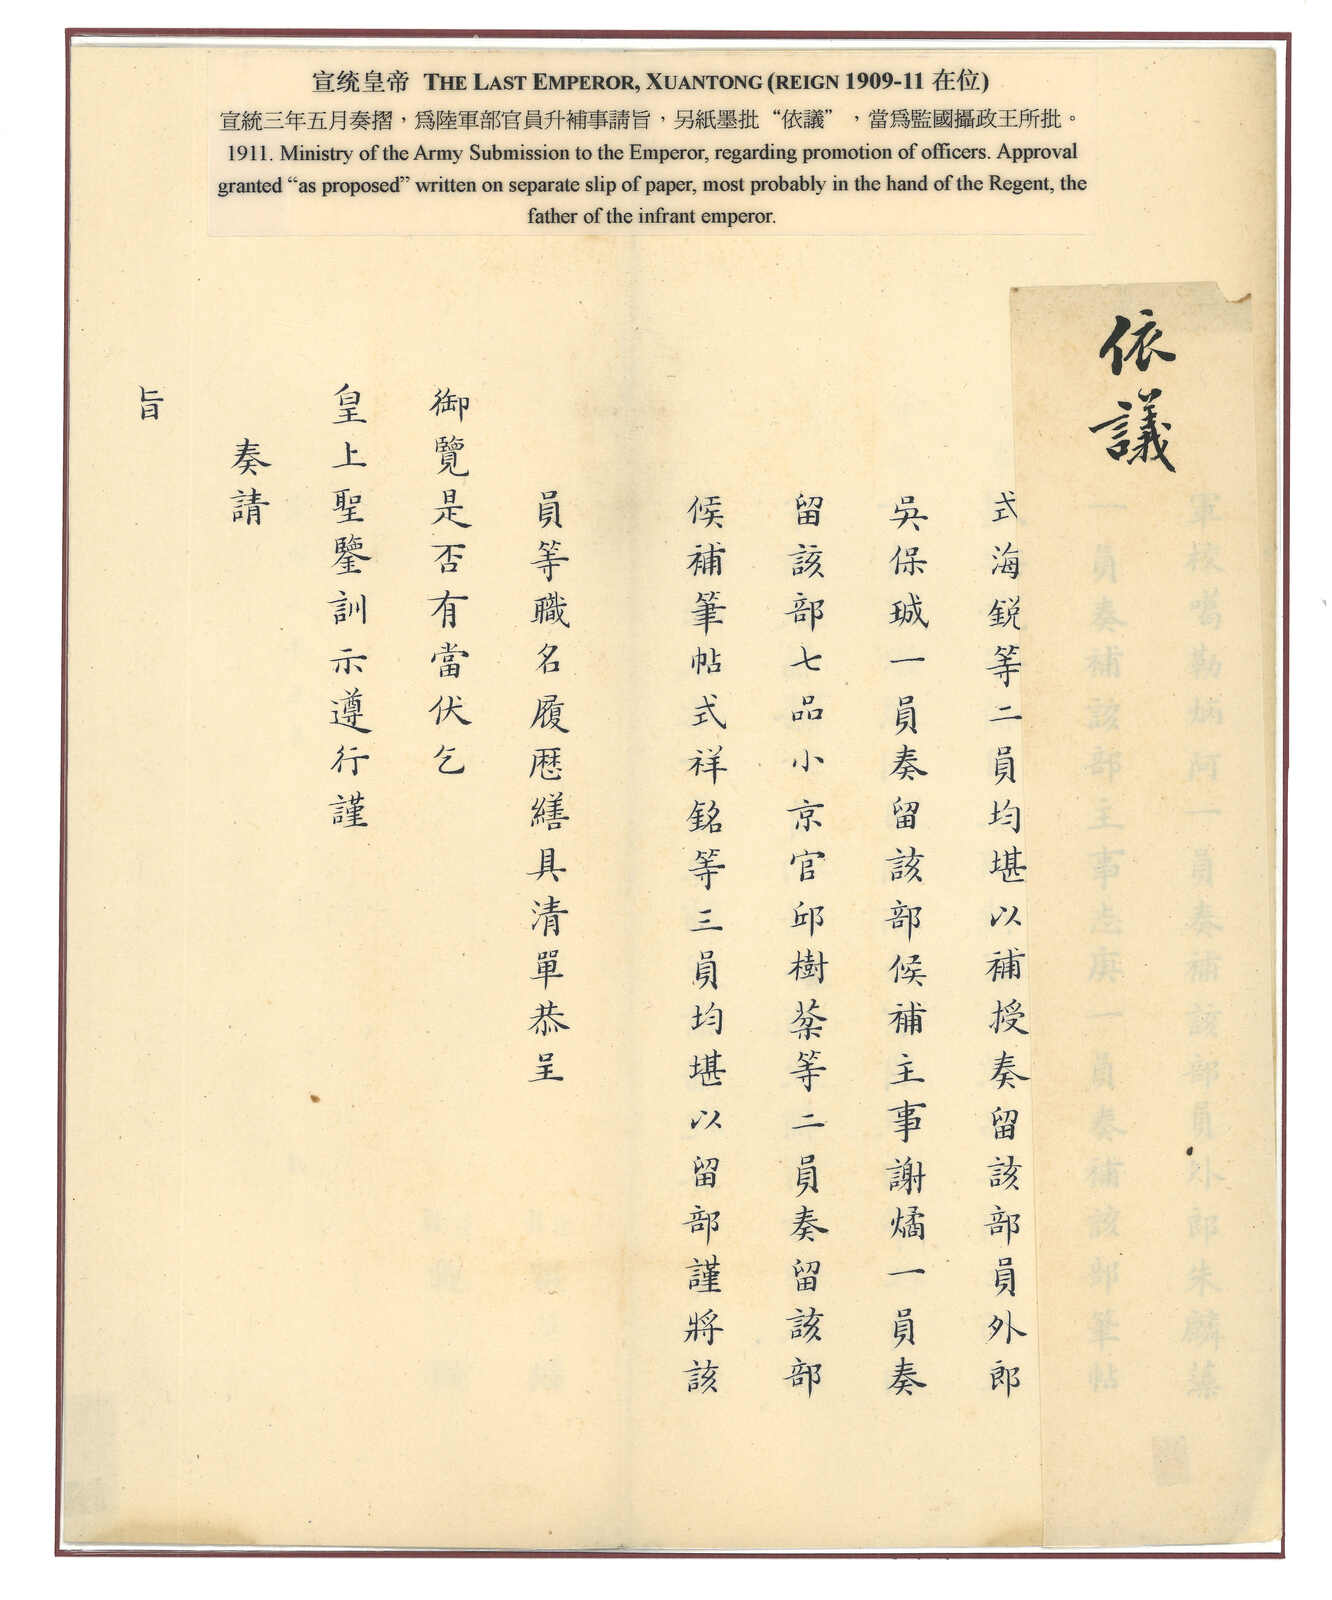 宣统皇帝 THE LAST EMPEROR, XUANTONG (REIGN 1909-11 在位)
宣統三年五月奏摺，為陸軍部官員升補事請旨，另紙墨批“依議”，當為監國攝政王所批。
1911. Ministry of the Army Submission to the Emperor, regarding promotion of officers. Approval
granted “as proposed” written on separate slip of paper, most probably in the hand of the Regent, the
father of the infrant emperor.
依議
軍校噶勒炳阿一員奏補該部員外郎朱麟
一員奏補該部主事一員奏補該部筆帖
式海銳等二員均堪以補授奏留該部員外郎
吳保珹一員奏留該部候補主事謝燏一員奏
留該部七品小京官邱樹棻等二員奏留該部
候補筆帖式祥銘等三員均堪以留部謹將該
員等職名履歷繕具清單恭呈
御覽是否有當伏乞
皇上聖鑒訓示遵行謹
奏請
旨